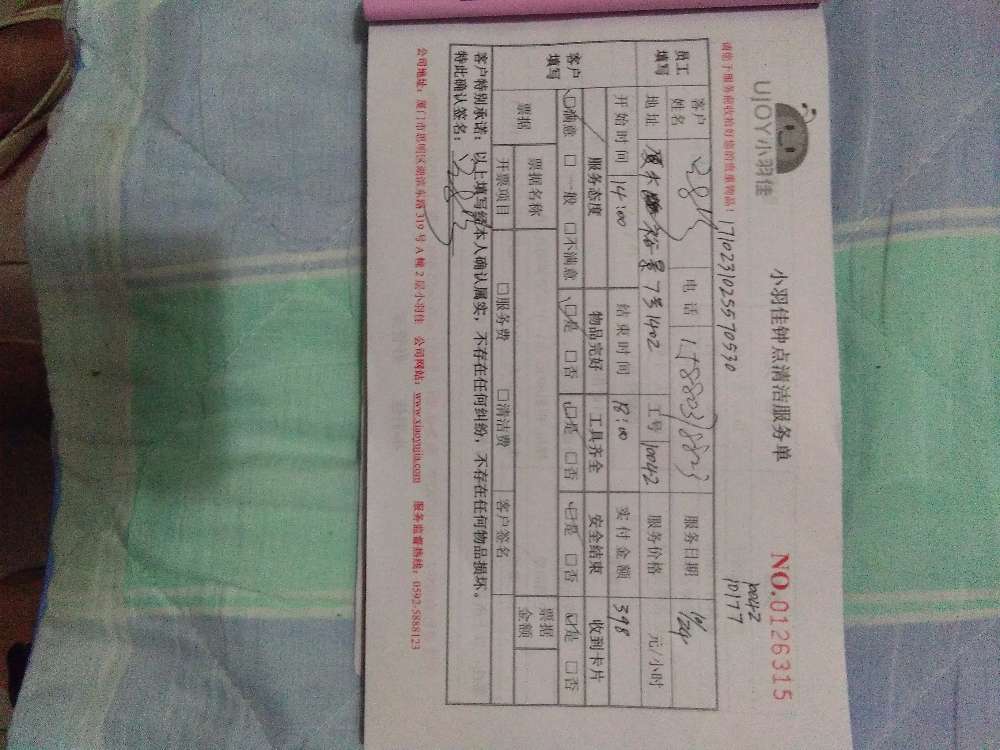 UJOY小羽佳
小羽佳钟点清洁服务单
NO.0126315
请您于服务前收拾好您的贵重物品！
1710231025570530
10042
10177
员工填写
客户姓名
电话
服务日期 10/24
地址 厦大 裕景7号1402
工号 10042
服务价格 元/小时
开始时间 14:00
结束时间 18:00
实付金额 398
客户填写
服务态度 物品完好 工具齐全 安全结束 收到卡片
□满意 □一般 □不满意 □是 □否 □是 □否 □是 □否 □是 □否
票据 票据名称 票据金额
开票项目 □服务费 □清洁费 客户签名
客户特别承诺：以上填写经本人确认属实，不存在任何纠纷，不存在任何物品损坏。
特此确认签名：
公司地址：厦门市思明区湖滨东路319号A幢2层小羽佳 公司网站：www.xiaoyujia.com 服务监督热线：0592-5888123